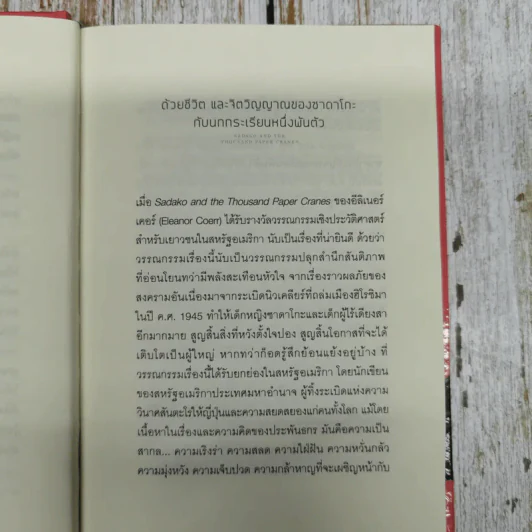 ด้วยชีวิต และจิตวิญญาณของซาดาโกะ
กับนกกระเรียนหนึ่งพันตัว
เมื่อ Sadako and the Thousand Paper Cranes ของอีลิเนอร์
เคอร์ (Eleanor Coerr) ได้รับรางวัลวรรณกรรมเชิงประวัติศาสตร์
สำหรับเยาวชนในสหรัฐอเมริกา นับเป็นเรื่องที่น่ายินดี ด้วยว่า
วรรณกรรมเรื่องนี้นับเป็นวรรณกรรมปลุกสำนึกสันติภาพ
ที่อ่อนโยนทว่ามีพลังสะเทือนหัวใจ จากเรื่องราวผลภัยของ
สงครามอันเนื่องมาจากระเบิดนิวเคลียร์ที่ถล่มเมืองฮิโรชิมา
ในปี ค.ศ. 1945 ทำให้เด็กหญิงซาดาโกะและเด็กผู้ไร้เดียงสา
อีกมากมาย สูญสิ้นสิ่งที่หวังตั้งใจปอง สูญสิ้นโอกาสที่จะได้
เติบโตเป็นผู้ใหญ่ หากทว่าก็อดรู้สึกย้อนแย้งอยู่บ้าง ที่
วรรณกรรมเรื่องนี้ได้รับยกย่องในสหรัฐอเมริกา โดยนักเขียน
ของสหรัฐอเมริกาประเทศมหาอำนาจ ผู้ทิ้งระเบิดแห่งความ
วินาศสันตะโรให้ญี่ปุ่นและความสยดสยองแก่คนทั้งโลก แม้โดย
เนื้อหาในเรื่องและความคิดของประพันธกร มันคือความเป็น
สากล... ความเริงร่า ความสลด ความใฝ่ฝัน ความหวั่นกลัว
ความมุ่งหวัง ความเจ็บปวด ความกล้าหาญที่จะเผชิญหน้ากับ